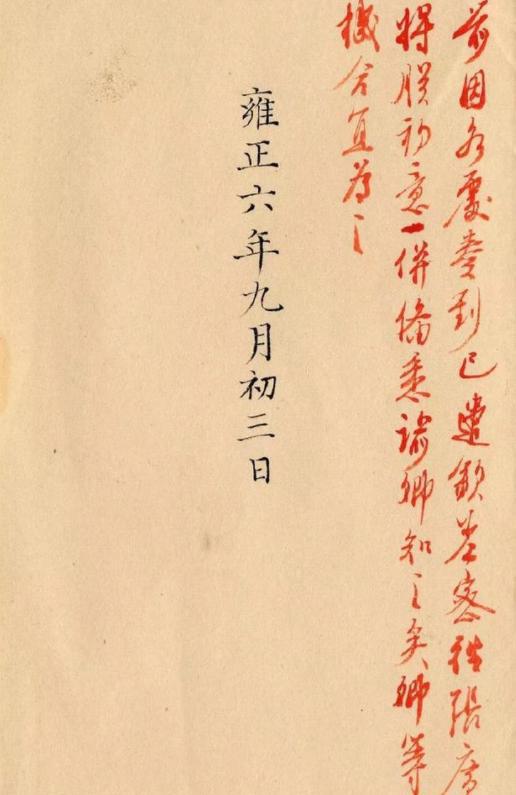 前因各處奏到已遣欽差密往張
將朕初意一併備悉諭卿知之矣卿等
機合宜為之
雍正六年九月初三日